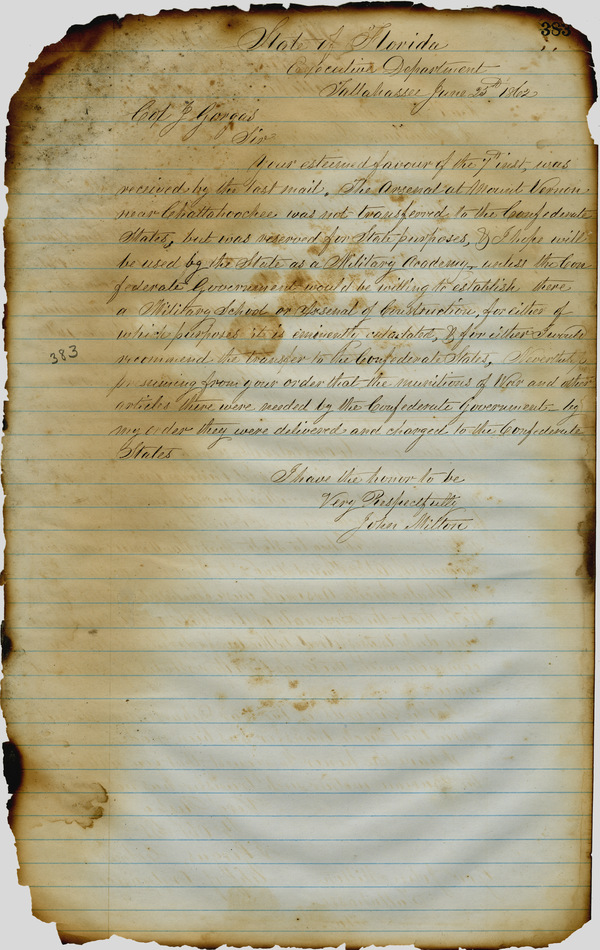 383
State of Florida
Executive Department
Tallahassee June 25th 1862
Col J. Gorgas
Sir
Your esteemed favour of the 7th inst, was
received by the last mail. The Arsenal at Mount Vernon
near Chattahoochee was not transferred to the Confederate
States, but was reserved for State purposes, & I hope will
be used by the State as a Military Academy, unless the Con
federate Government would be willing to establish there
a Military School or Arsenal of Construction, for either of
which purposes it is eminently calculated, & for either I would
383
recommend the transfer to the Confederate States,
presuming from your order that the munitions of War and other
articles there were needed by the Confederate Government by
my order they were delivered and charged to the Confederate
States
I have the honor to be
Very Respectfully
John Milton